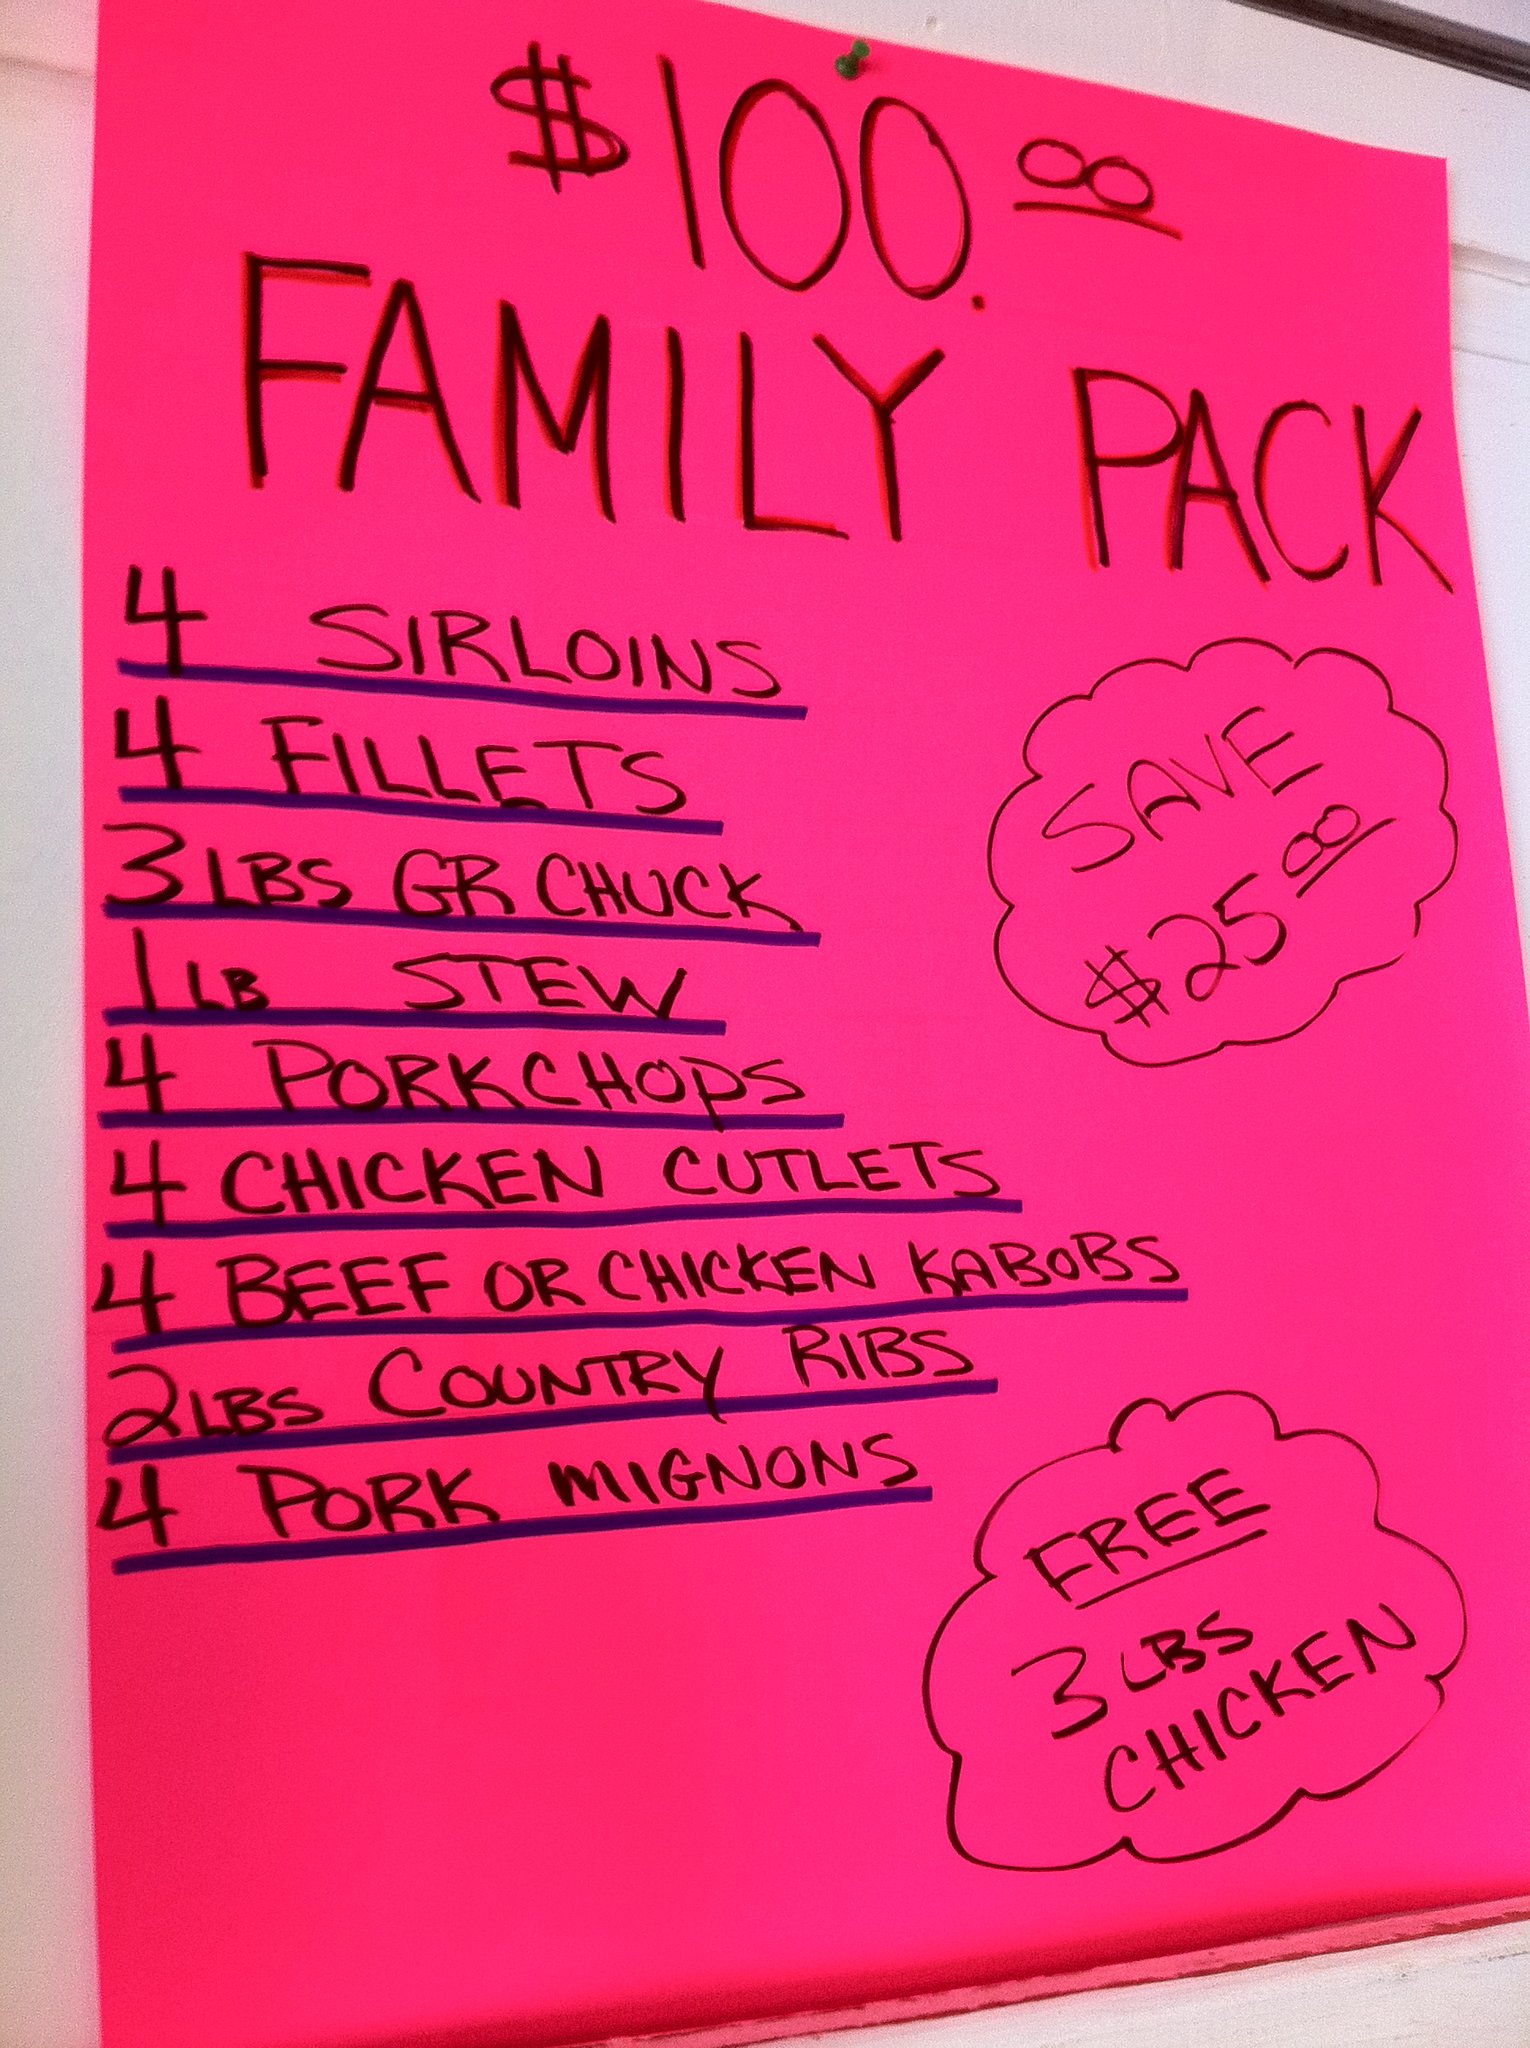 $100.00
FAMILY PACK
4 SIRLOINS
4 FILLETS
3 LBS GR CHUCK
1 LB STEW
4 PORKCHOPS
4 CHICKEN CUTLETS
4 BEEF OR CHICKEN KABOBS
2 LBS COUNTRY RIBS
4 PORK MIGNONS
SAVE
$25 00
FREE
3 LBS
CHICKEN